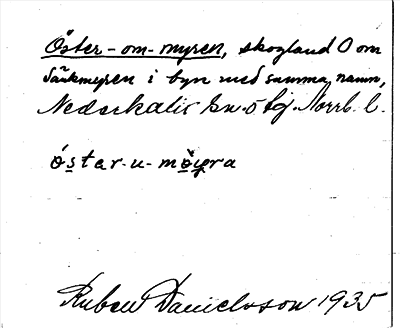 Öster-om-myren, skogland O om
Tärkmyren i byn med samma namn,
Nederkalix sn. o tg. Norrb. l.
óstar-u-mö̀yra
Ruben Danielsson 1935